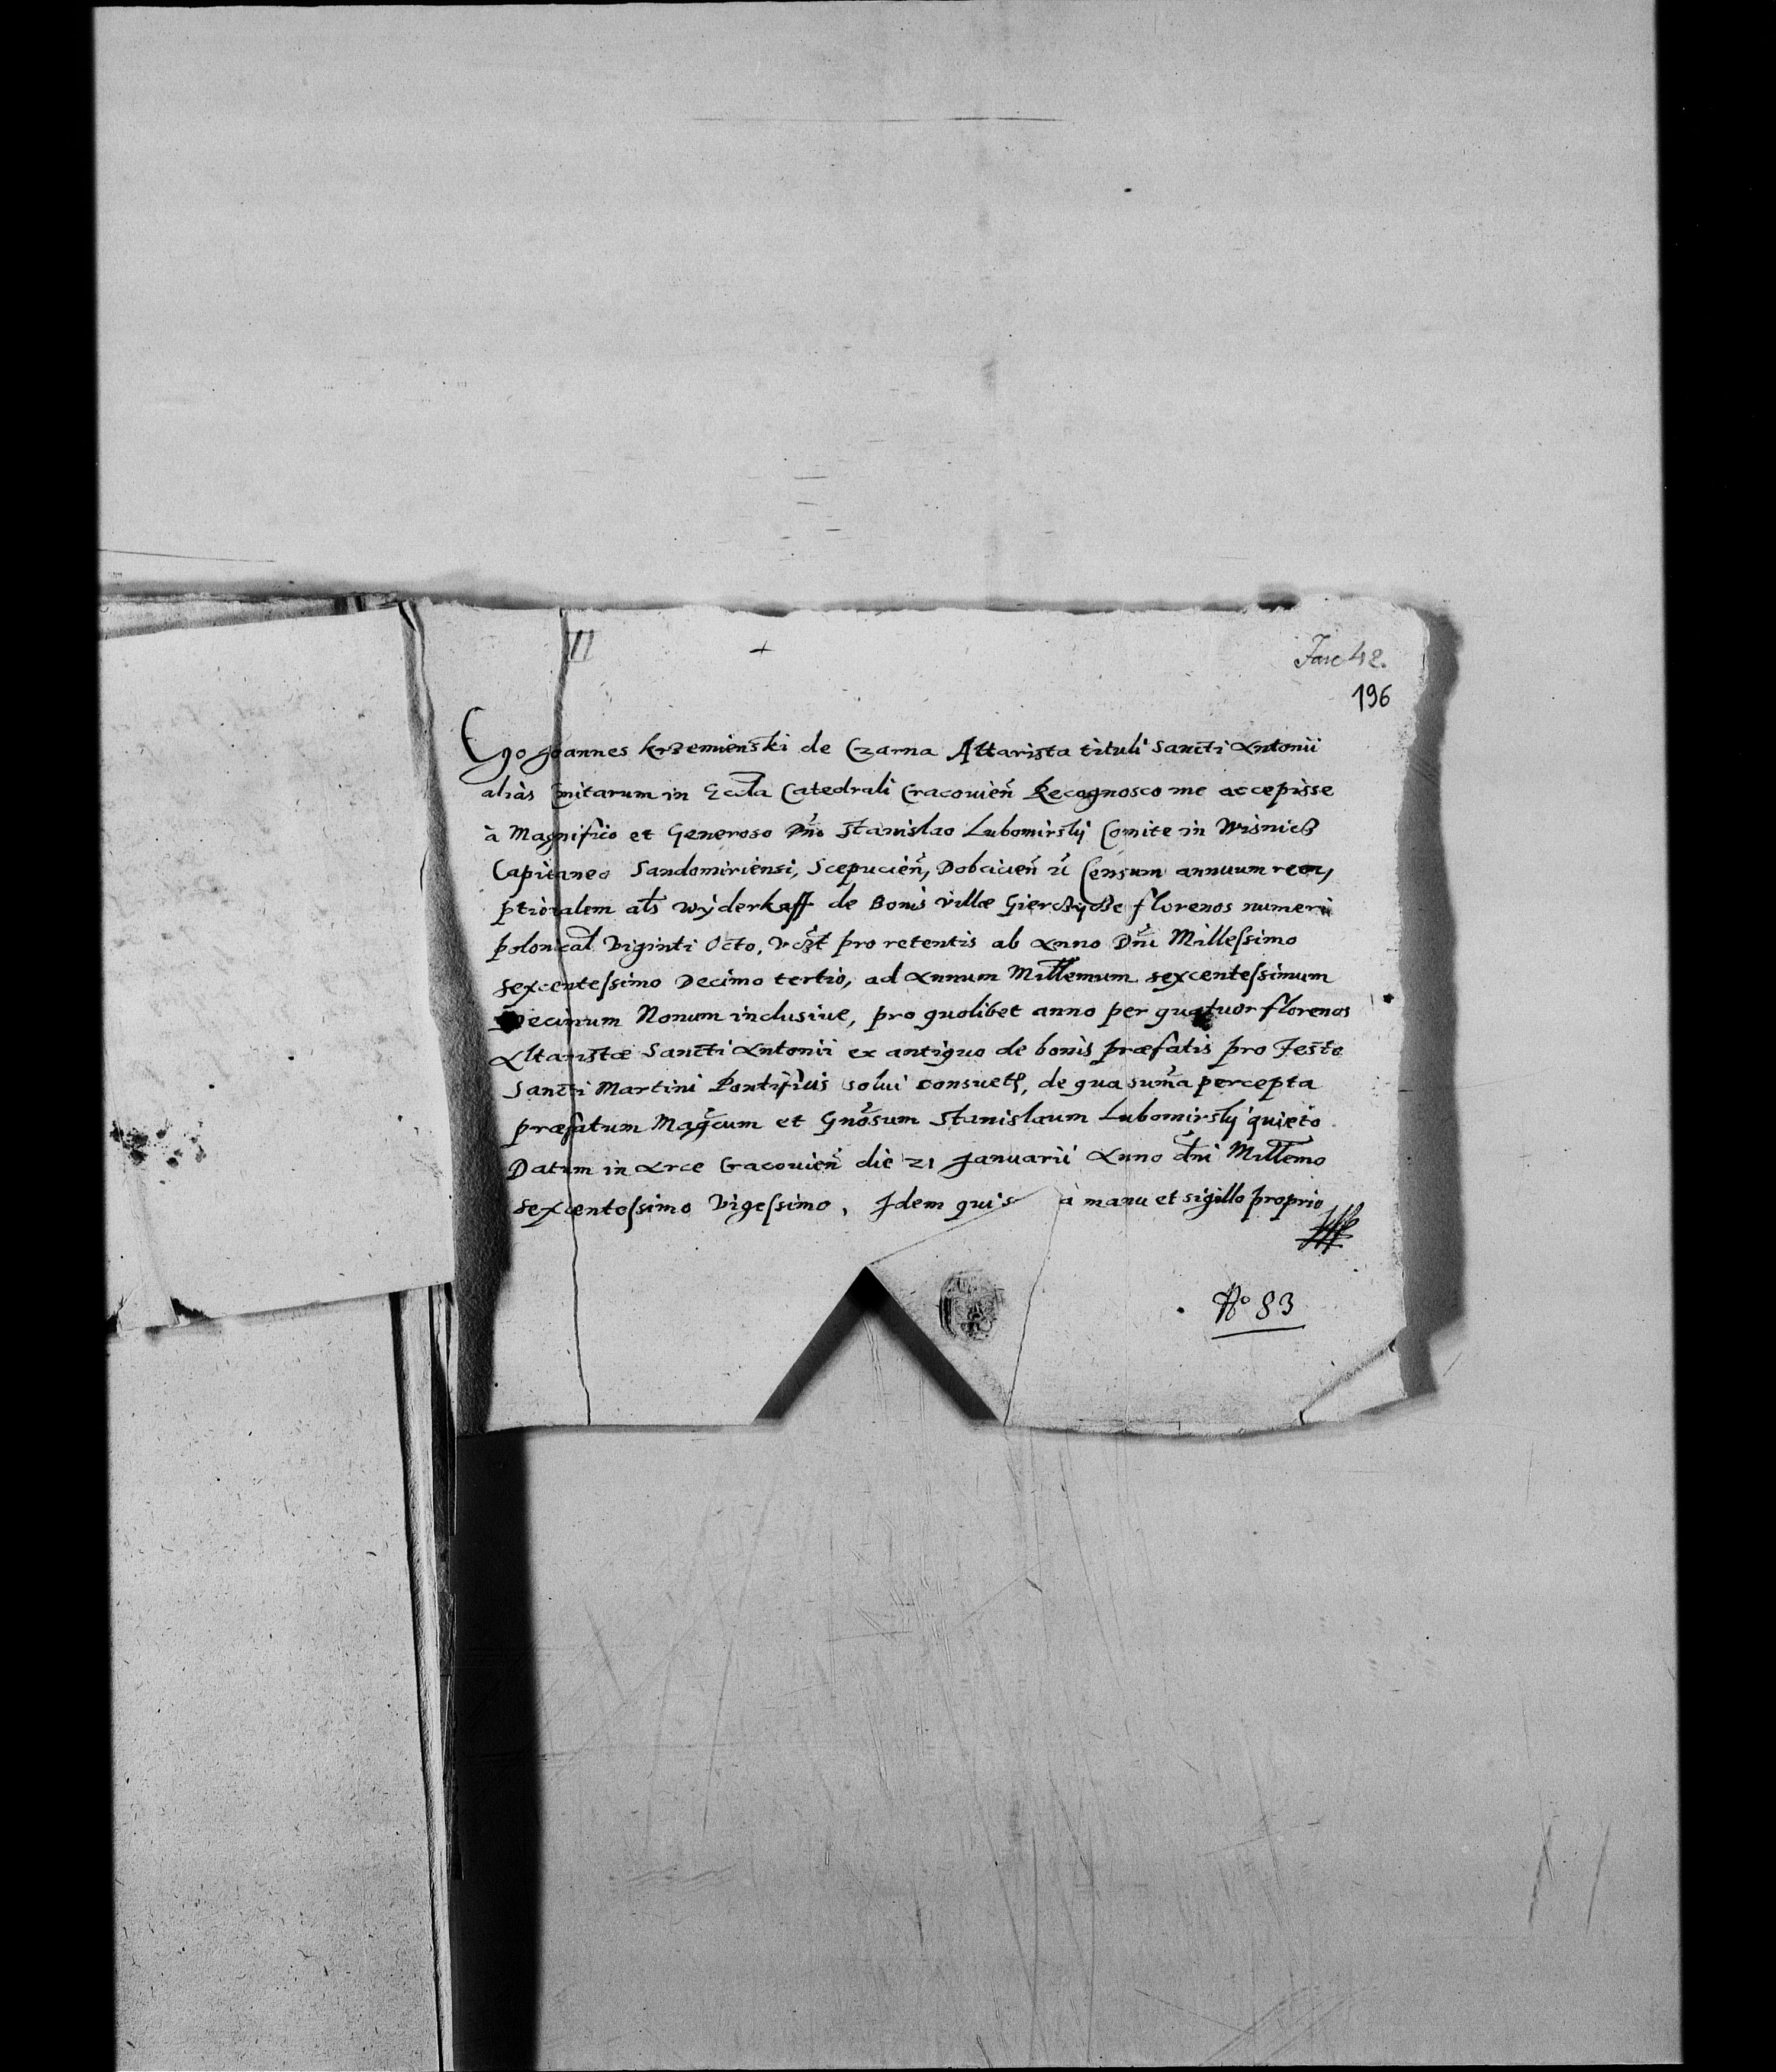 II +
Fasc 42.
196
Ego Joannes Krzemienski de Czarna Altarista tituli Sancti Antonii
aliàs in Eccl̃a Catedrali Cracovien̄ Recognosco me accepisse
à Magnifico et Generoso Dn̄o Stanislao Lubomirsky Comite in Wisnicz
Capitaneo Sandomiriensi, Scepucien̄, Dobcicien̄ Censum annuum
ptionalem al̃s wyderkaff de Bonis villæ florenos numeri
polonical̃ Viginti Octo, vcz̃t pro retentis ab Anno Dn̄i Millessimo
sexcentessimo Decimo tertio, ad Annum Mill̃emum sexcentessimum
Decimum Nonum inclusive, pro quolibet anno per quatuor florenos
Altaristæ Sancti Antonii ex antiquo de bonis præfatis pro Festo
Sancti Martini Pontificis solui , de qua sum̃a percepta
præfatum Mag̃cum et Gn̄osum Stanislaum Lubomirsky quieto.
Datum in Arce Cracovien̄ die 21 Januarii Anno Dn̄i Mill̃emo
sexcentessimo Vigessimo, Idem qui s[upr]a manu et sigillo proprio
No 83